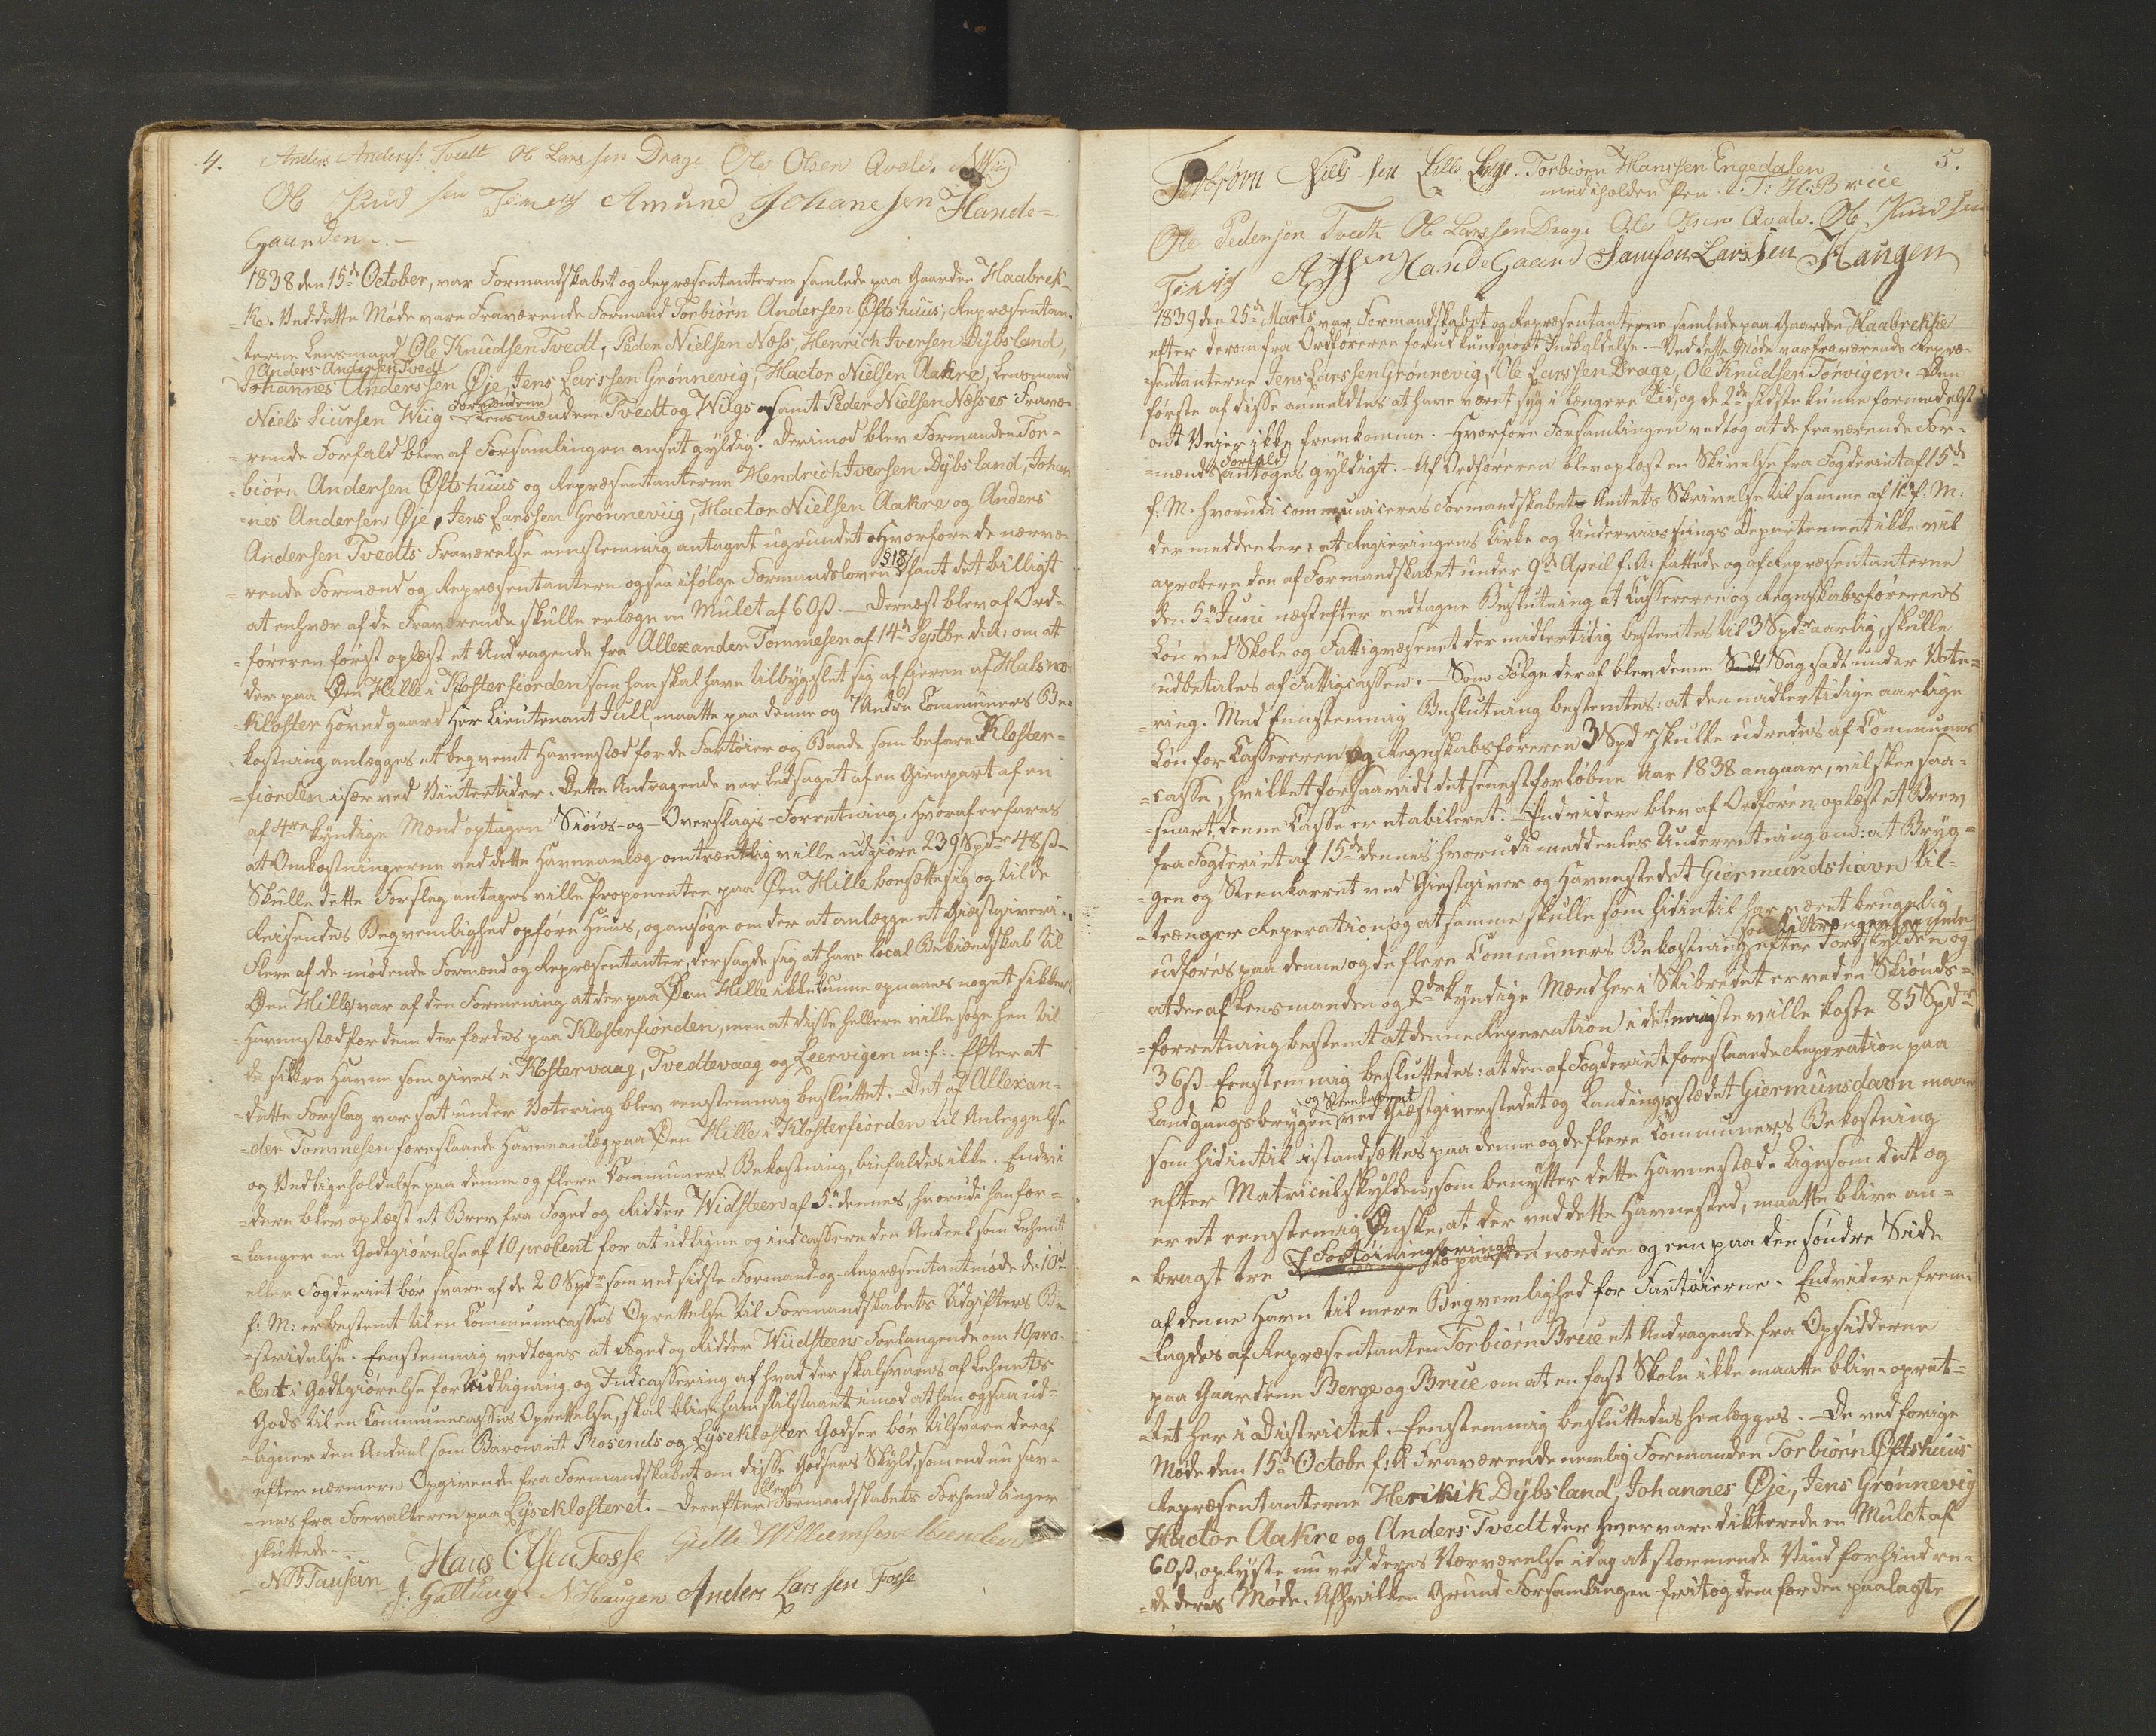 4.
Anders Anders: Tvedt Ole Larssen Drage Ole Olsen Qvale.
Ole Knud sen Torvig Amund Johanesen Hande-
Gaarden.-
1838 den 15de October, var Formandskabet og Repræsentanterne samlede paa Gaarden Haabrek-
-ke. Ved dette Møde vare Fraværende Formand Torbiørn Andersen Øfsthuus, Repræsentan-
-terne Lensmand Ole Knudsen Tvedt, Peder Nielsen Næss, Henrich Iversen Dybsland,
Anders Andersen Tvedt
Johannes Anderssen Øje, Jens Larssen Grønnevig, Hactor Nielsen Aakre, Lensmand
Formændene
Niels Siursen Wiig Lensmændene Tvedt og Wiigs samt Peder Nielsen Næsses Fravæ-
-rende Forfald blev af Forsamlingen anset gyldig. Derimod blev Formanden Tor-
-biørn Andersen Øfsthuus og Repræsentanterne Hendrich Iversen Dybsland, Johan
-nes Andersen Øje, Jens Larssen Grønneviig, Hactor Nielsen Aakre og Anders
Andersen Tvedts Fraværelse eenstemmig antaget ugrundet. Hvorfore de nærvæ-
§ 18
-rende Formænd og Repræsentantere ogsaa ifølge Formandsloven fant det billigt
at enhver af de Fraværende skulle erlægge en Mulct af 60 ß. - Dernæst blev af Ord-
-føreren først oplæst et Andragende fra Allexander Tommesen af 14de Septbr d: A: om at
der paa Øen Hille i Klosterfiorden som han skal have tilbygslet sig af Eieren af Halsnø
-Kloster Hovedgaard Her Lieutenant Juell maatte paa denne og 7 Andre Communers Be-
-kostning anlægges et beqvemt Havnested for de Fartøier og Baade som befare Kloster-
-fiorden især ved Vintertider. Dette Andragende var ledsaget af en Gienpart af en
af 4re kyndige Mænd optagen Siøns- og- Overslags- Forretning, hvoraf erfares
at Omkostningerne ved dette Havneanlæg omtrentlig ville udgiøre 239 Spdr 48 ß -
Skulle dette Forslag antages ville Proponenten paa Øen Hille bosætte sig og til de
Reisendes Beqvemlighed opføre Huus, og ansøge om der at anlægge et Giestgiveri.
Flere af de mødende Formænd og Repræsentanter, der sagde sig at have Local Bekiendskab til
Øen Hille, var af den Formening at der paa Øen Hille ikke kunne opnaaes noget sikkert
Havnested for dem der færdes paa Klosterfiorden, men at disse hellere ville søge hen til
de sikre Havne som gives i Klostervaag, Tvedtevaag og Leervigen m: f:. Efter at
dette Forslag var sat under Votering blev eenstemmig besluttet. Det af Allexan-
-der Tommesen foreslaaede Havneanlæg paa Øen Hille i Klosterfiorden til Anlæggelse
og Vedligeholdelse paa denne og flere Communers Bekostning, biefaldes ikke. Endvi-
-dere blev oplæst et Brev fra Foged og Ridder Widsteen af 5te dennes, hvorudi han for-
-langer en Godtgiørelse af 10 proCent for at udligne og indcassere den Andeel som Lehnet
eller Fogderiet bør svare af de 20 Spdr som ved sidste Formand- og- Repræsentantmøde de 10de
f: M: er bestemt til en Communecasses Oprettelse til Formandskabets Udgifters Be-
-stridelse. Eenstemmig vedtoges at Foged og Ridder Wiidsteens Forlangende om 10 pro-
-Cent i Godtgiørelse for Udligning og Indcassering af hvad der skal svares af Lehnets
Gods til en Communecasses Oprettelse, skal blive ham tilstaaet imod at han ogsaa ud-
-ligner den Andeel som Baroniet Rosends og Lysekloster Godser bør tilsvare deraf
efter nærmere Opgivende fra Formandskabet om disse Godsers Skyld, som endnu sav-
-nes fra Forvalteren paa Lysekloster. - Derefter blev Formandskabets Forhandlinger
sluttede. -
N B Tausen Hans Olsen Fosse Gielle Willumsen
J. Gættung N Haugen Anders Lars sen Fosse
5.
Torbjørn Niels sen Lille Linge. Torbiørn Hanssen Engedalen
med iholden Pen T: H: Brue
Ole Pedersen Tveitt Ole Larssen Drage Ole Olsen Qvale. Ole Knudsen
Torvig A Jhsen HandeGaard Samson Larssen Haugen
1839 den 25de Marts var Formandskabet og Repræsentanterne samlede paa Gaarden Haabrekke
efter derom fra Ordføreren forud kundgiort Indkaldelse. - Ved dette Møde var fraværende Repræ-
-sentanterne Jens Larssen Grønnevig, Ole Larssen Drage, Ole Knudsen Torvigen. Den
første af disse anmeldtes at have været syg i længere Tid, og de 2de sidste kunne formedelst
ont Veier ikke fremkomme. Hvorfore Forsamlingen vedtog at de fraværende For-
Forfald
-mænds antoges gyldigt. - Af Ordføreren blev oplæst en Skrivelse fra Fogderiet af 15de
f. M. hvorudi communiceres Formandskabet Amtets Skrivelse til samme af 11te f: M:
der meddeeler: at Regieringens Kirke og Underviisnings Departement ikke vil
aprobere den af Formandskabet under 9de April f: A: fattede og af Repræsentanterne
den 5te Juni næstefter vedtagne Beslutning at Casserer og Regnskabsførerens
Løn ved Skole og Fattigvæsenet der midlertidig bestemtes til 3 Spdr aarlig, skulle
udbetales af Fattigcassen. - Som Følge deraf blev denne Sag sadt under Vote-
-ring. Med Eenstemmig Beslutning bestemtes: at den midlertidige aarlige
Løn for Cassereren og Regnskabsføreren 3 Spdr skulle udredes af Communens
-casse, hvilket forsaavidt det seneste forløbne Aar 1838 angaar, vil skee saa-
-snart denne Casse er etableret. - Endvidere blev af Ordføren oplæst et Brev
fra Fogderiet af 15de dennes hvorudi meddeeles Underretning om: at Bryg-
-gen og Steenkarret ved Giestgiver og Havnestedet Giermundshavn til-
-trænger Reperation, og at samme skulle som hidintil har været brugelig
udføres paa denne og de flere Communers Bekostning efter Jordskylden og
at der af Lensmanden og 2de kyndige Mænd her i Skibredet er ved en Skiønds-
-forretning bestemt at denne Reperation i det mindste ville koste 85 Spdr
36 ß. Eenstemmig besluttedes: at den af Fogderiet foreslaaede Reperation paa
og Steenkarret
Landgangsbryggen ved Giestgiverstedet og Landingsstædet Giermunshavn maae
som hidintil istandsættes paa denne og de flere Communers Bekostning
efter Matriculskylden, som benytter dette Havnestæd. Ligesom det og
er et eenstemmig Ønske, at der ved dette Havnested, maatte blive an-
-bragt tre Fortøiningsringe to paa den nordre og een paa den søndre Side
af denne Havn til mere Beqvemlighed for Fartøierne. Endvidere frem-
-lagdes af Repræsentanten Torbiørn Brue et Andragende fra Opsidderne
paa Gaardene Berge og Brue om at en fast Skole ikke maatte blive opret-
-tet her i Districtet. Eenstemmig besluttedes henlægges. - De ved forige
Møde den 15de Octobe f: A Fraværende nemlig Formanden Torbiørn Øfsthuus
Repræsentanterne Henrik Dybsland, Johannes Øje, Jens Grønnevig
Hactor Aakre og Anders Tvedt der hver vare dikterede en Mulct af
60 ß, oplyste nu ved deres Nærværelse idag at stormende Vind forhindre-
-de deres Møde. Af hvilken Grund Forsamlingen fritog dem for den paalagte